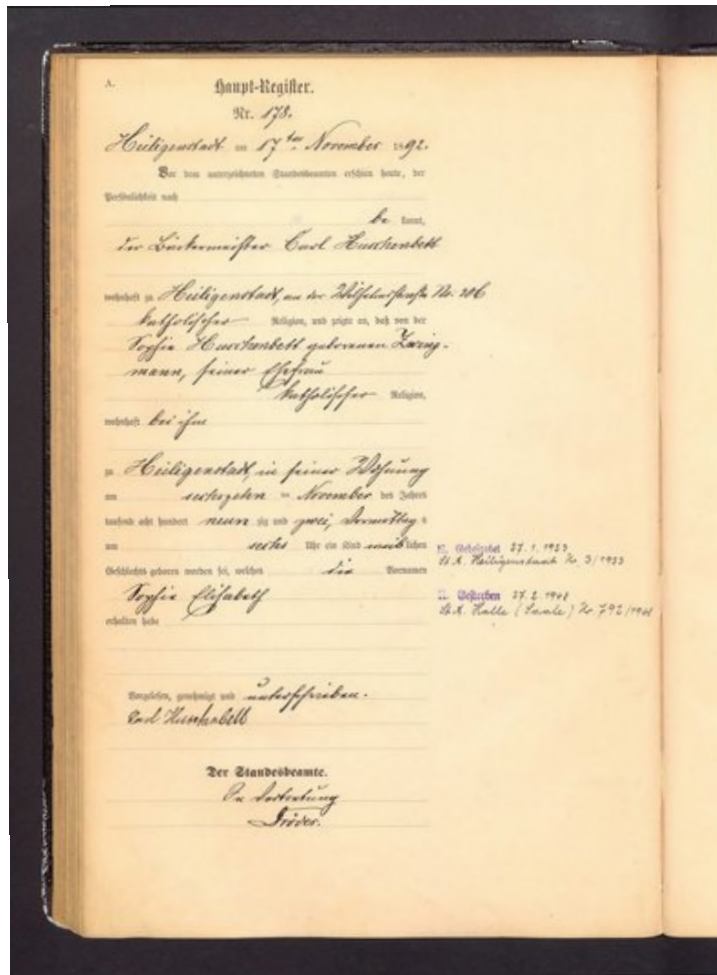 A.
Haupt-Register.
Nr. 178.
Heiligenstadt am 17ten November 1892.
Vor dem unterzeichneten Standesbeamten erschien heute, der
Persönlichkeit nach
be kannt,
der Bäckermeister Carl Huschenbett
wohnhaft zu Heiligenstadt, an der Wilhelmstraße No. 206
katholischer Religion, und zeigte an, daß von der
Sophie Huschenbett geborenen Zwing-
mann, seiner Ehefrau
katholischer Religion,
wohnhaft bei ihm
zu Heiligenstadt, in seiner Wohnung
am sechszehnten November des Jahres
tausend acht hundert neun zig und zwei, Vormittag s
um sechs Uhr ein Kind weib lichen
Geschlechts geboren worden sei, welches die Vornamen
Sophie Elisabeth
erhalten habe
Vorgelesen, genehmigt und unterschrieben.
Carl Huschenbett
Der Standesbeamte.
In Vertretung
27. 1. 1933
St. A. Heiligenstadt Nr. 3/1933
Gestorben 27. 2.
St. A. Halle (Saale) Nr. 792/